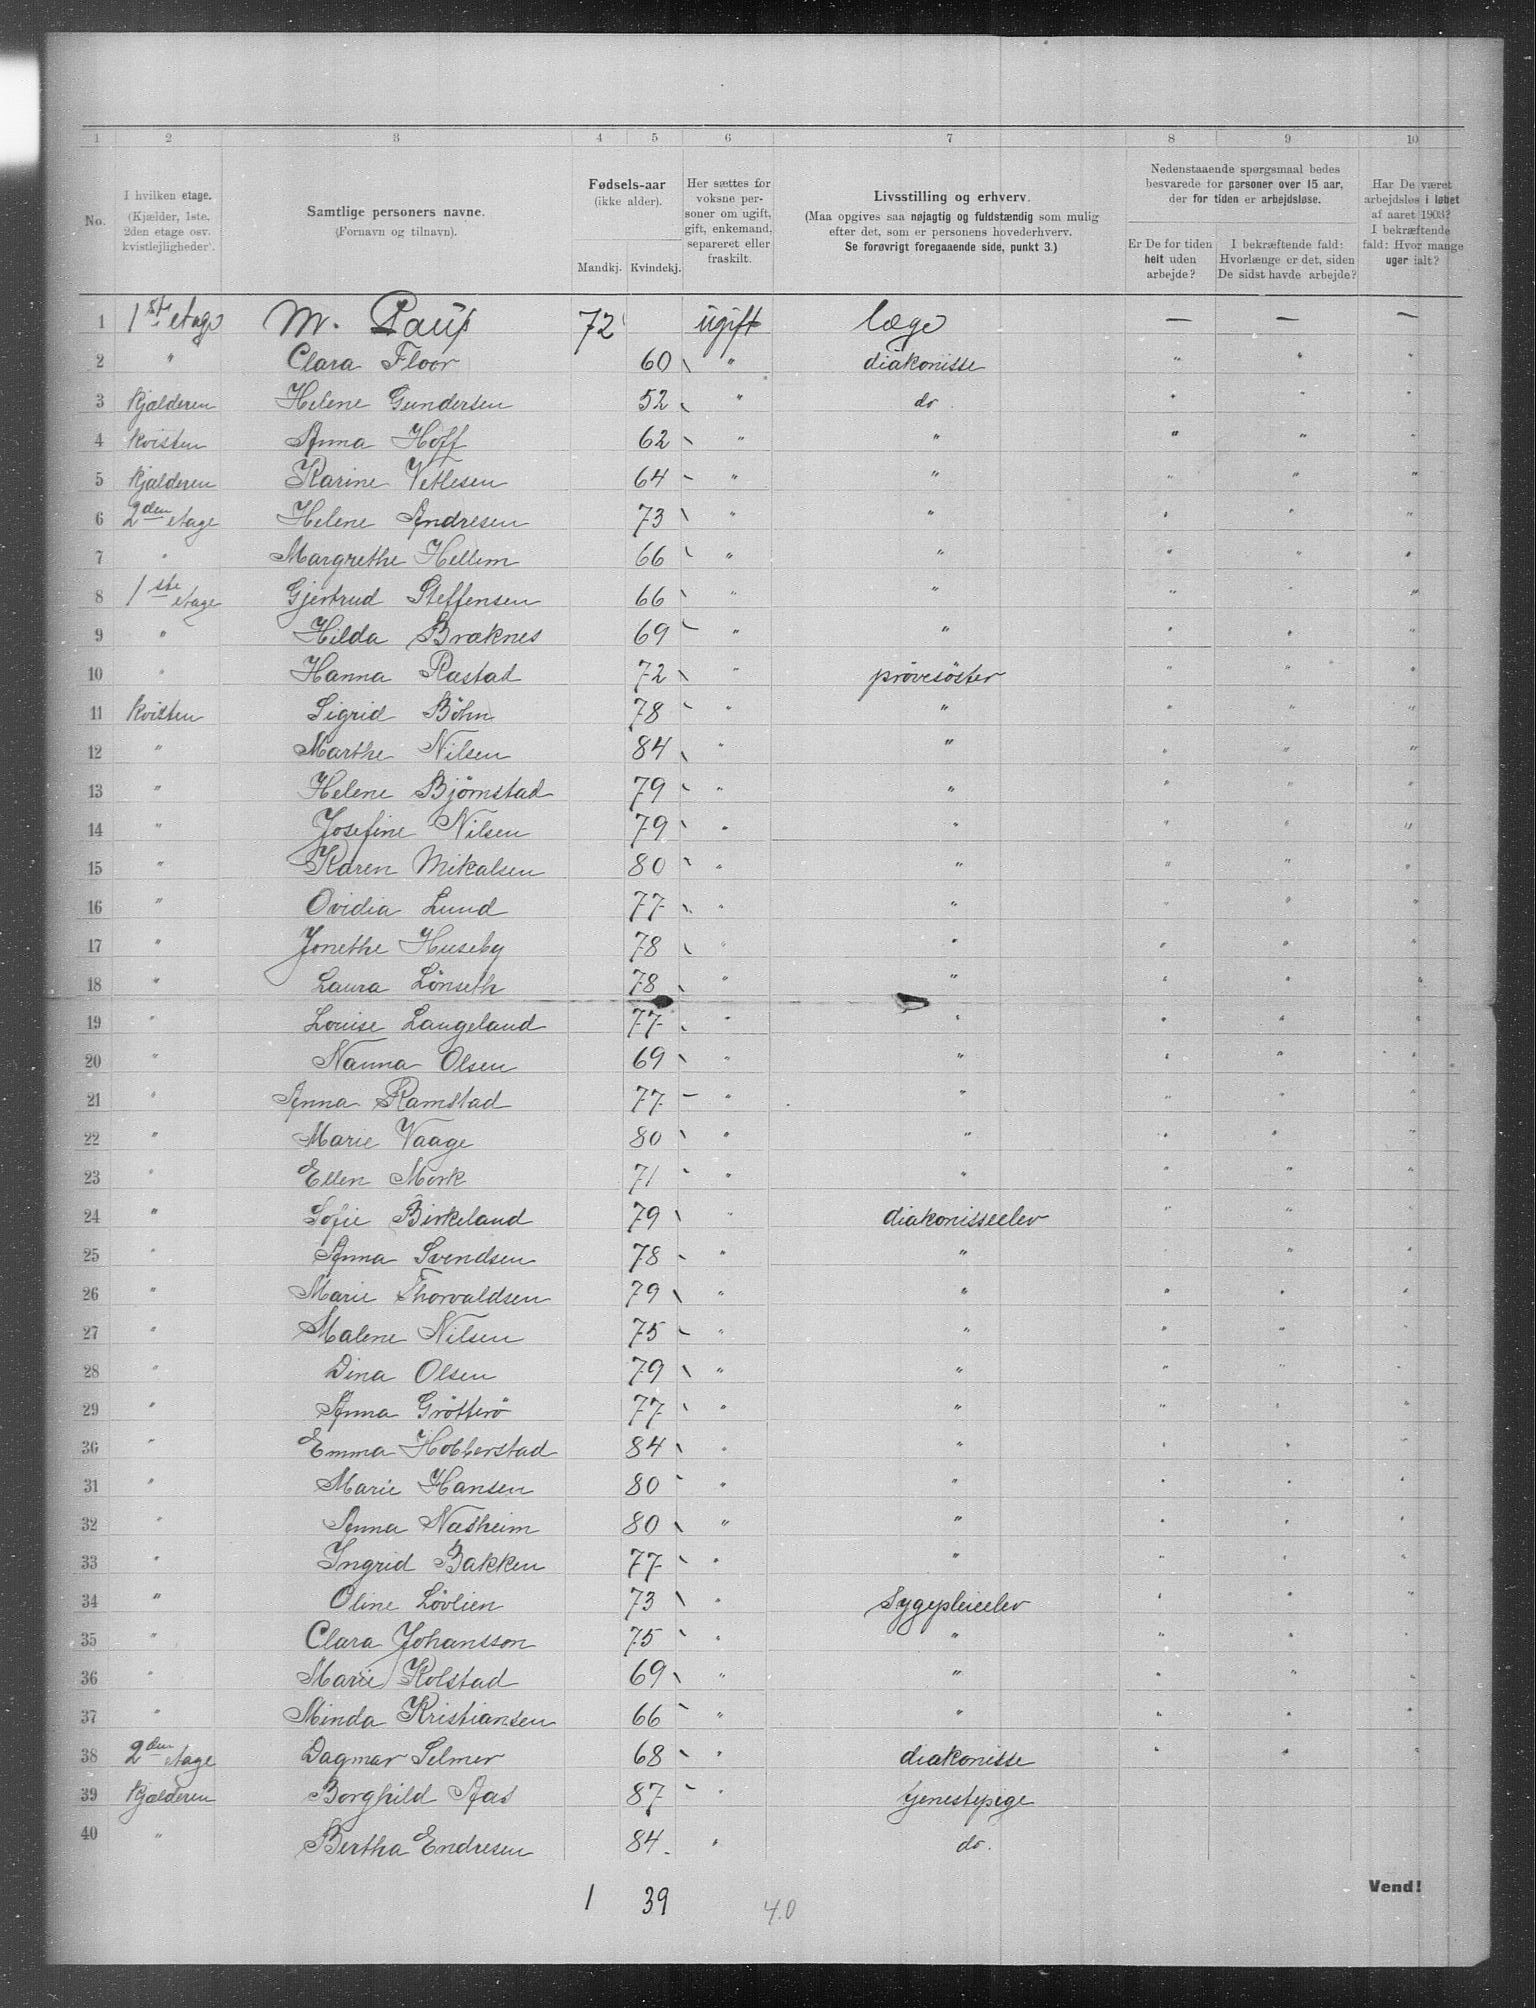 1 2 3 4 5 6 7 8 9 10
No.
I hvilken etage.
(Kjælder, 1ste.
2den etage osv.
kvistlejligheder).
Samtlige personers navne.
(Fornavn og tilnavn).
Fødsels-aar
(ikke alder).
Mandkj. Kvindekj.
Her sættes for
voksne per-
soner om ugift,
gift, enkemand,
separeret eller
fraskilt.
Livsstilling og erhverv.
(Maa opgives saa nøjagtig og fuldstændig som mulig
efter det, som er personens hovederhverv.
Se forøvrigt foregaaende side, punkt 3.)
Nedenstaaende spørgsmaal bedes
besvarede for personer over 15 aar,
der for tiden er arbejdsløse.
Er De for tiden
helt uden
arbejde?
I bekræftende fald:
Hvorlænge er det, siden
De sidst havde arbejde?
Har De været
arbejdsløs i løbet
af aaret 1903?
I bekræftende
fald: Hvor mange
uger ialt?
1 1ste etage M. Paus 72 ugift læge — — —
2 " Clara Floor 60 " diakonisse " " "
3 Kjælderen Helene Gundersen 52 " do. " " "
4 Kvisten Anna Hoff 62 " " " " "
5 Kjælderen Karine Vetlesen 64 " " " " "
6 2den etage Helene Andresen 73 " " " " "
7 " Margrethe Hellem 66 " " " " "
8 1ste etage Gjertrud Steffensen 66 " " " " "
9 " Hilda Bræknes 69 " " " " "
10 " Hanna Rastad 72 " prøvesøster " " "
11 Kvisten Sigrid Böhn 78 " " " " "
12 " Marthe Nilsen 84 " " " " "
13 " Helene Bjørnstad 79 " " " " "
14 " Josefine Nilsen 79 " " " " "
15 " Karen Mikalsen 80 " " " " "
16 " Ovidia Lund 77 " " " " "
17 " Jonethe Huseby 78 " " " " "
18 " Laura Lönseth 78 " " " " "
19 " Louise Langeland 77 " " " " "
20 " Nanna Olsen 69 " " " " "
21 " Anna Ramstad 77 " " " " "
22 " Marie Vaage 80 " " " " "
23 " Ellen Mork 71 " " " " "
24 " Sofie Birkeland 79 " diakonisseelev " " "
25 " Anna Svendsen 78 " " " " "
26 " Marie Thorvaldsen 79 " " " " "
27 " Malene Nilsen 75 " " " " "
28 " Dina Olsen 79 " " " " "
29 " Anna Grötterö 77 " " " " "
30 " Emma Hobberstad 84 " " " " "
31 " Marie Hansen 80 " " " " "
32 " Anna Næsheim 80 " " " " "
33 " Ingrid Bakken 77 " " " " "
34 " Oline Løvlien 73 " Sygepleieelev " " "
35 " Clara Johansson 75 " " " " "
36 " Marie Kolstad 69 " " " " "
37 " Minda Kristiansen 66 " " " " "
38 2den etage Dagmar Selmer 68 " diakonisse " " "
39 Kjælderen Borghild Aas 87 " tjenestepige
40 " Bertha Endresen 84. " do.
1 39 40
Vend!